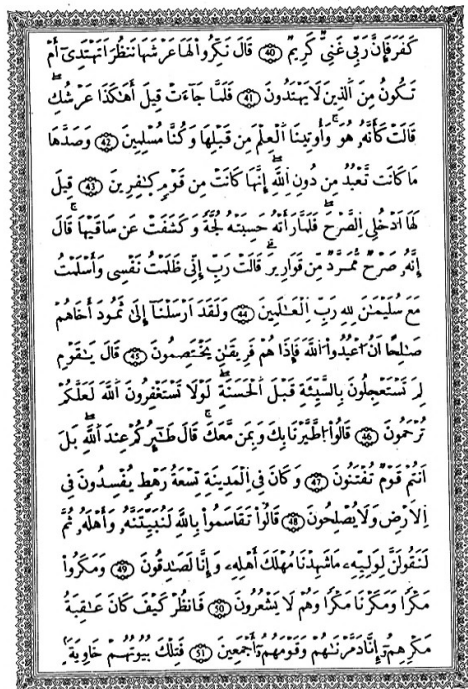 كَفَرَ فَإِنَّ رَبِّي غَنِيٌّ كَرِيمٌ ﴿40﴾ قَالَ نَكِّرُوا لَهَا عَرْشَهَا نَنظُرْ أَتَهْتَدِي أَمْ
تَكُونُ مِنَ الَّذِينَ لَا يَهْتَدُونَ ﴿41﴾ فَلَمَّا جَاءَتْ قِيلَ أَهَٰكَذَا عَرْشُكِ
قَالَتْ كَأَنَّهُ هُوَ وَأُوتِينَا الْعِلْمَ مِن قَبْلِهَا وَكُنَّا مُسْلِمِينَ ﴿42﴾ وَصَدَّهَا
مَا كَانَت تَّعْبُدُ مِن دُونِ اللَّهِ إِنَّهَا كَانَتْ مِن قَوْمٍ كَٰفِرِينَ ﴿43﴾ قِيلَ
لَهَا ادْخُلِي الصَّرْحَ فَلَمَّا رَأَتْهُ حَسِبَتْهُ لُجَّةً وَكَشَفَتْ عَن سَاقَيْهَا قَالَ
إِنَّهُ صَرْحٌ مُّمَرَّدٌ مِّن قَوَارِيرَ قَالَتْ رَبِّ إِنِّي ظَلَمْتُ نَفْسِي وَأَسْلَمْتُ
مَعَ سُلَيْمَٰنَ لِلهِ رَبِّ الْعَٰلَمِينَ ﴿44﴾ وَلَقَدْ أَرْسَلْنَا إِلَىٰ ثَمُودَ أَخَاهُمْ
صَٰلِحًا أَنُ اعْبُدُوا اللَّهَ فَإِذَا هُمْ فَرِيقَٰنِ يَخْتَصِمُونَ ﴿45﴾ قَالَ يَٰقَوْمِ
لِمَ تَسْتَعْجِلُونَ بِالسَّيِّئَةِ قَبْلَ الْحَسَنَةِ لَوْلَا تَسْتَغْفِرُونَ اللَّهَ لَعَلَّكُمْ
تُرْحَمُونَ ﴿46﴾ قَالُوا اطَّيَّرْنَا بِكَ وَبِمَن مَّعَكَ قَالَ طَٰئِرُكُمْ عِندَ اللَّهِ بَلْ
أَنتُمْ قَوْمٌ تُفْتَنُونَ ﴿47﴾ وَكَانَ فِي الْمَدِينَةِ تِسْعَةُ رَهْطٍ يُفْسِدُونَ فِي
الْأَرْضِ وَلَا يُصْلِحُونَ ﴿48﴾ قَالُوا تَقَاسَمُوا بِاللَّهِ لَنُبَيِّتَنَّهُ وَأَهْلَهُ ثُمَّ
لَنَقُولَنَّ لِوَلِيِّهِ مَا شَهِدْنَا مُهْلَكَ أَهْلِهِ وَإِنَّا لَصَٰدِقُونَ ﴿49﴾ وَمَكَرُوا
مَكْرًا وَمَكَرْنَا مَكْرًا وَهُمْ لَا يَشْعُرُونَ ﴿50﴾ فَانظُرْ كَيْفَ كَانَ عَٰقِبَةُ
مَكْرِهِمُ إِنَّا دَمَّرْنَٰهُمْ وَقَوْمَهُمُ أَجْمَعِينَ ﴿51﴾ فَتِلْكَ بُيُوتُهُمْ خَاوِيَةً